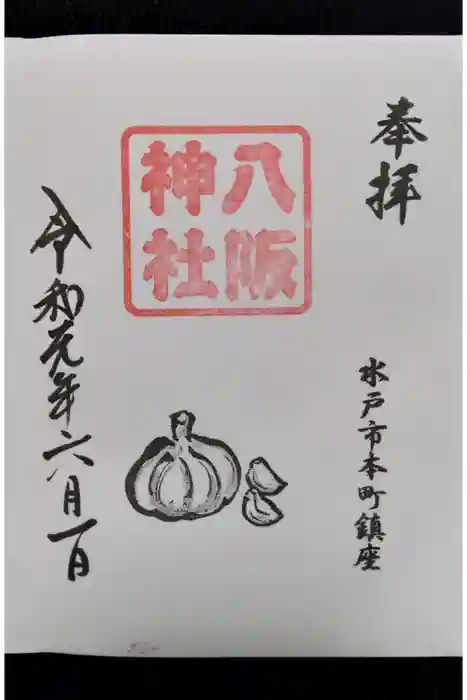 奉拝
水戸市本町鎮座
八阪
神社
令和元年六月一日